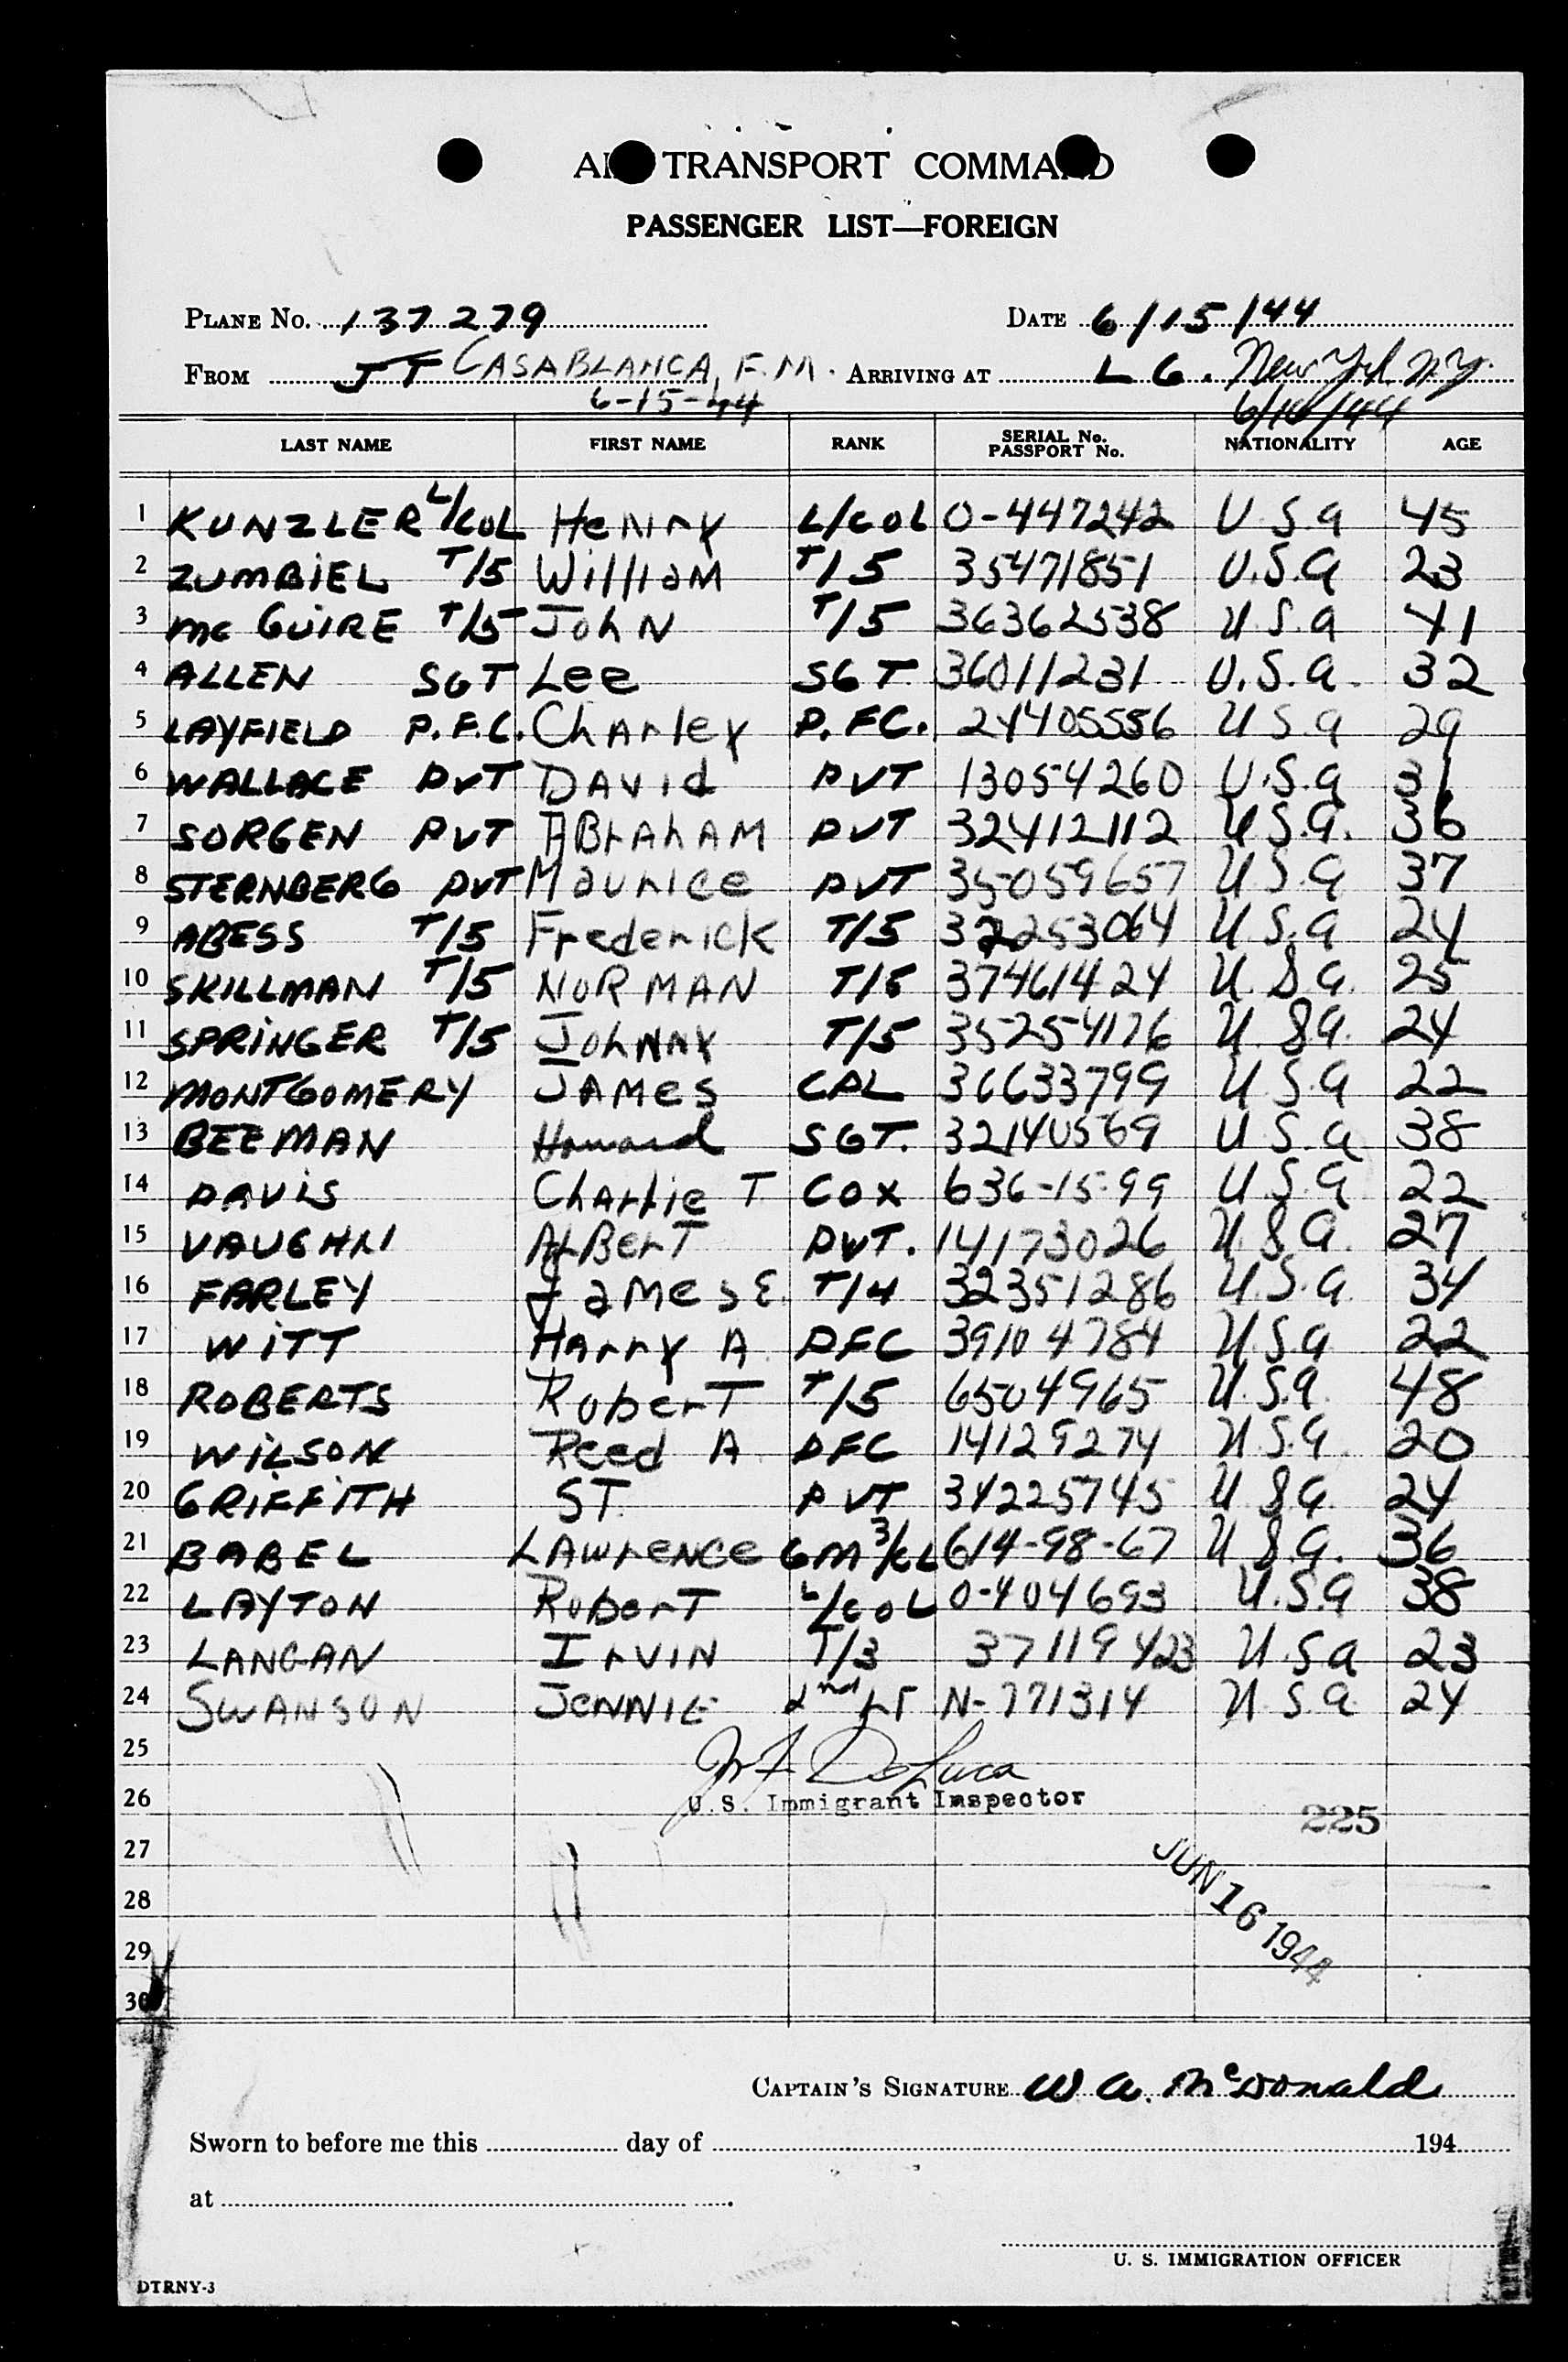 AIR TRANSPORT COMMAND
PASSENGER LIST—FOREIGN
PLANE No. 137279 DATE 6/15/44
FROM JT CASABLANCA, F.M. ARRIVING AT L G. New York N.Y.
6-15-44 6/16/44
LAST NAME FIRST NAME RANK SERIAL No. PASSPORT No. NATIONALITY AGE
1 KUNZLER L/COL Henry L/COL O-447242 U.S.A 45
2 ZUMBIEL T/5 William T/5 35471851 U.S.A 23
3 Mc GUIRE T/5 John T/5 36362538 U.S.A 41
4 ALLEN SGT Lee SGT. 36011231 U.S.A. 32
5 LAYFIELD P.F.C. Charley P.FC. 24405556 U S A 29
6 WALLACE PVT David PVT 13054260 U.S.A 31
7 SORGEN PVT ABrahAM PVT 32412112 U.S.A. 36
8 STERNBERG PVT Maurice PVT 35059657 U.S.A 37
9 ABESS T/5 Frederick T/5 32253064 U.S.A 24
10 SKILLMAN T/5 NORMAN T/5 37461424 U.S.A. 25
11 SPRINGER T/5 JohNNy T/5 35254176 U.S.A. 24
12 MONTGOMERY JAMes CPL 36633799 U.S.A 22
13 BEEMAN Howard SGT. 32140569 U.S.A 38
14 DAVIS Charlie T COX 636-15-99 U.S.A 22
15 VAUGHN AlBerT PVT. 14173026 U.S.A. 27
16 FARLEY James E. T/4 32351286 U.S.A. 34
17 WITT HArry A. PFC 39104784 U.S.A 22
18 ROBERTS RoberT T/5 6504965 U.S.A. 48
19 WILSON Reed A. PFC 14129274 U.S.A 20
20 GRIFFITH ST. PVT 34225745 U.S.A. 24
21 BABEL LAWrence GM 3/CL 614-98-67 U.S.A. 36
22 LAYTON RoberT L/COL O-404693 U.S.A 38
23 LANGAN IrVIN T/3 37119423 U.S.A 23
24 SWANSON JeNNIE 2nd LT N-771314 U.S.A 24
25
26
27
28
29
30
DeLuca
U.S. Immigrant Inspector
225
JUN 16 1944
CAPTAIN'S SIGNATURE W. A. McDonald
Sworn to before me this day of 194
at
U. S. IMMIGRATION OFFICER
DTRNY-3